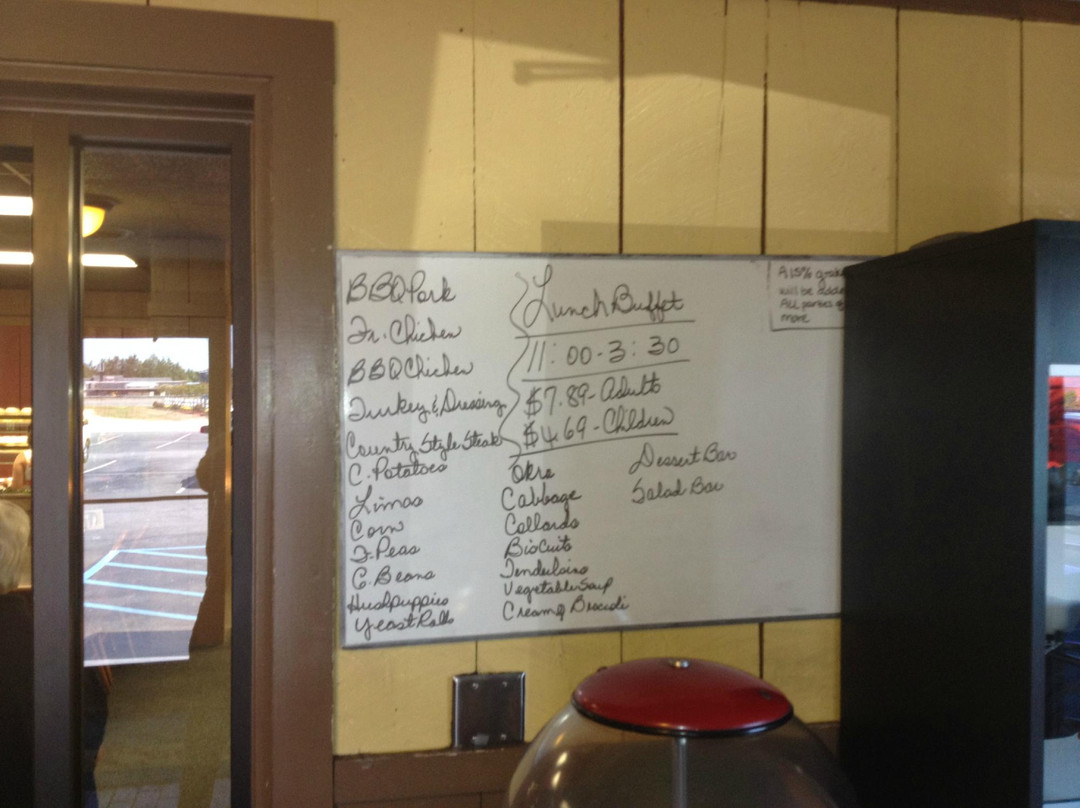 BBQ Pork
Fr. Chicken
BBQ Chicken
Turkey & Dressing
Country Style Steak
C. Potatoes
Limas
Corn
F. Peas
G. Beans
Hushpuppies
Yeast Rolls
Lunch Buffet
11:00-3:30
$7.89-Adults
$4.69-Children
Okra
Cabbage
Collards
Biscuits
Tenderloins
Vegetable Soup
Cream of Broccoli
Dessert Bar
Salad Bar
A 15%
will be
All parties
more